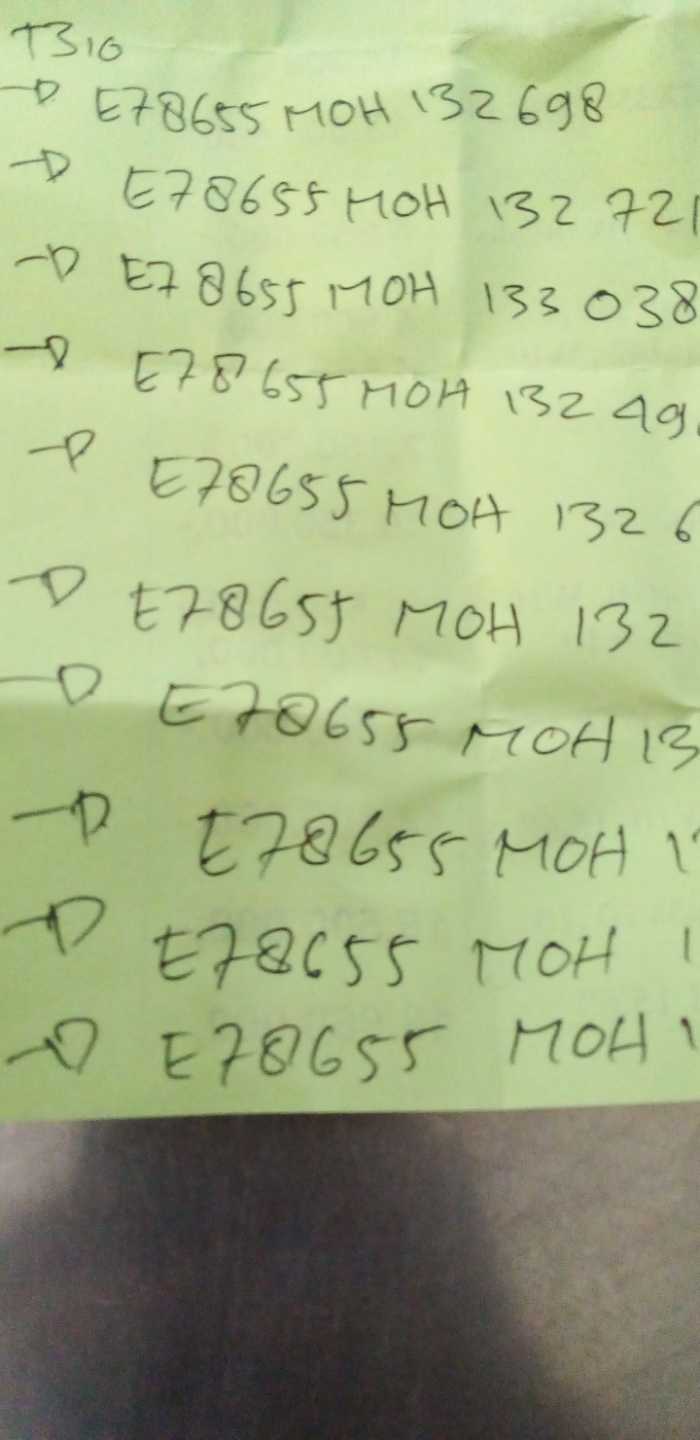 T310
E78655MOH132698
E78655MOH 132 721
E78655MOH 133 038
E78655MOH 132 49
E78655MOH 132 6
E78655 MOH 132
E78655 MOH 13
E78655 MOH 1
E78655 MOH 1
E78655 MOH 1